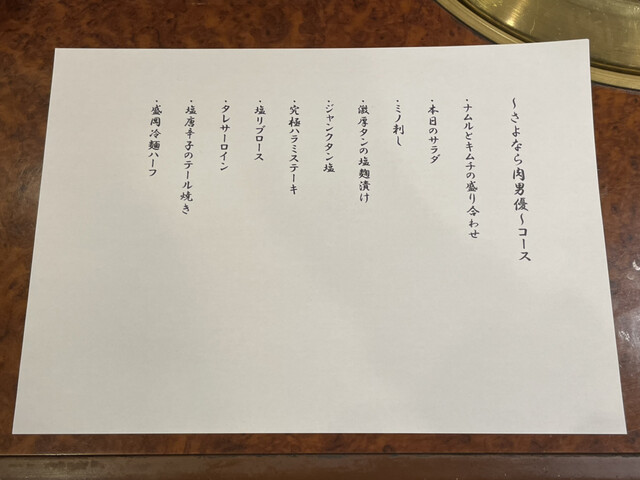 ～さよなら肉男優～コース
・ナムルとキムチの盛り合わせ
・本日のサラダ
・ミノ刺し
・激厚タンの塩麹漬け
・ジャンクタン塩
・究極ハラミステーキ
・塩リブロース
・タレサーロイン
・塩唐辛子のテール焼き
・盛岡冷麺ハーフ